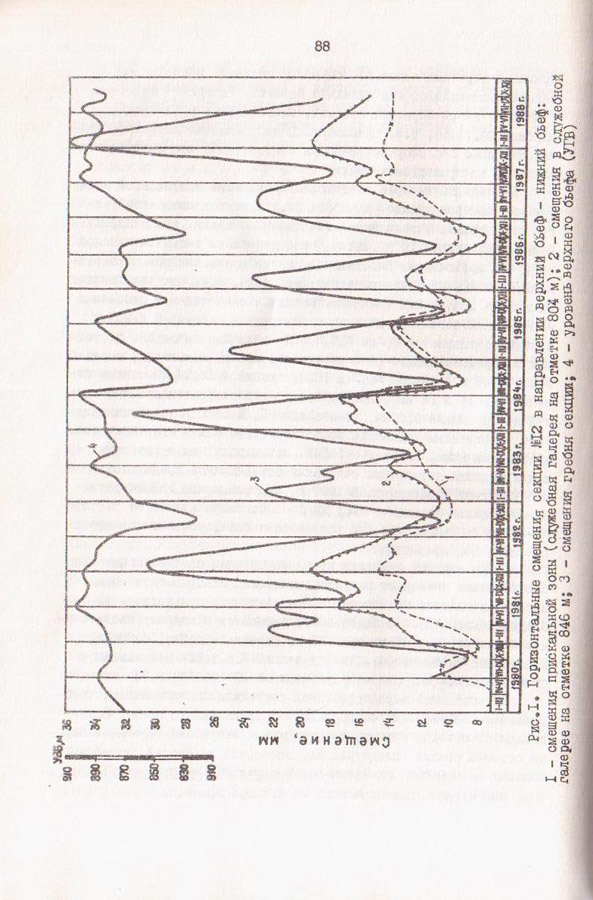 88
УВБ,м
910
890
870
850
830
910
36
34
32
30
28
26
24
22
20
18
16
14
12
10
8
Смещение, мм
4
3
2
1
I-III IV-VI VII-IX X-XII
1980г. 1981г. 1982г. 1983г. 1984г. 1985г. 1986г. 1987г. 1988г.
Рис.I. Горизонтальные смещения секции №I2 в направлении верхний бьеф - нижний бьеф:
I - смещения прискальной зоны (служебная галерея на отметке 804 м); 2 - смещения в служебной
галерее на отметке 846 м; 3 - смещения гребня секции; 4 - уровень верхнего бьефа (УГВ)